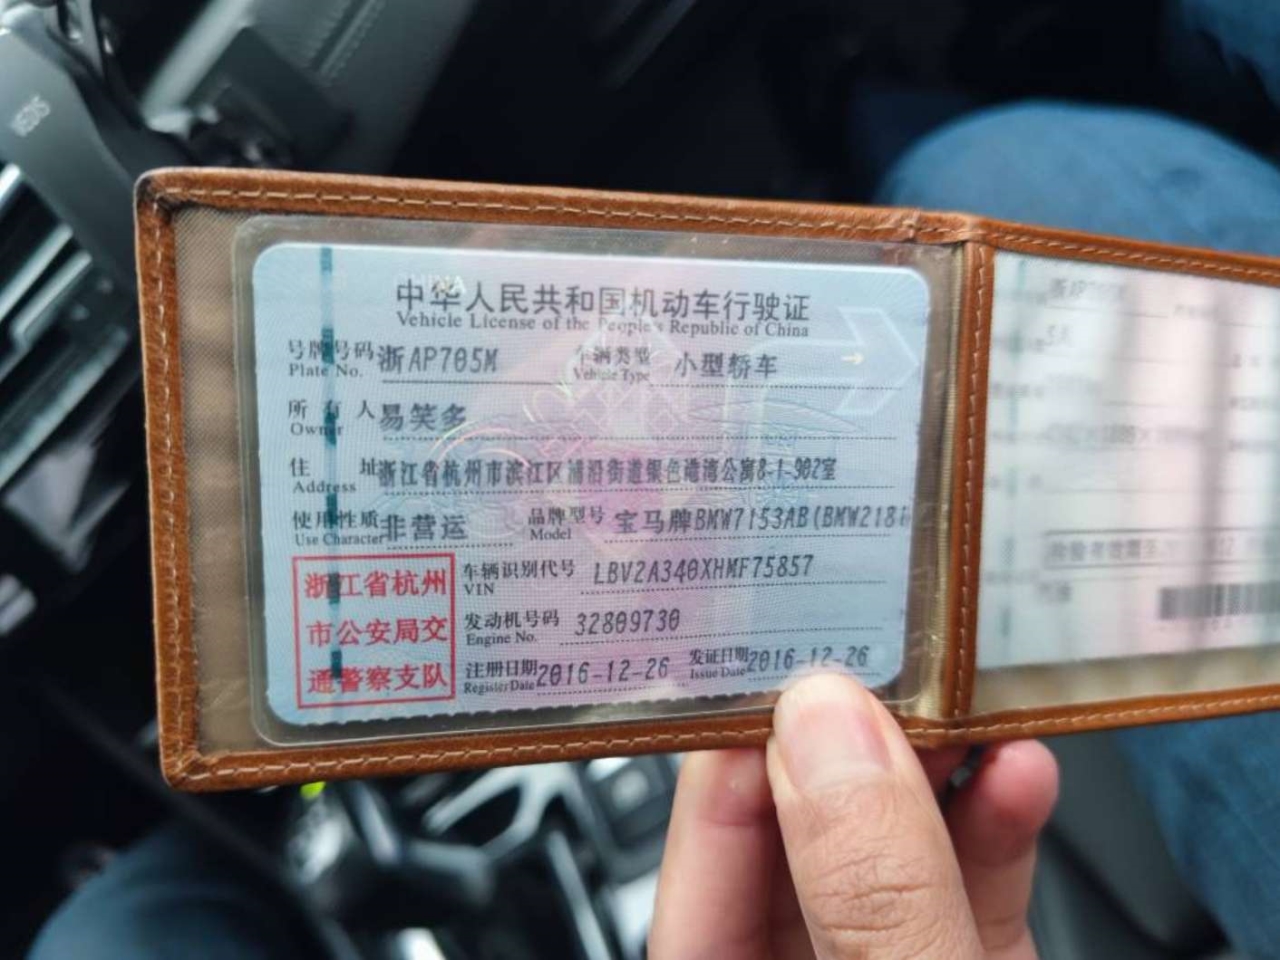 中华人民共和国机动车行驶证
Vehicle License of the People's Republic of China
号牌号码 浙AP705M 车辆类型 小型轿车
Plate No. Vehicle Type
所有人 易笑多
Owner
住址 浙江省杭州市滨江区浦沿街道银色港湾公寓8-1-902室
Address
使用性质 非营运 品牌型号 宝马牌BMW7153AB(BMW218i
Use Character Model
浙江省杭州
市公安局交
通警察支队
车辆识别代号 LBV2A340XHMF75857
VIN
发动机号码 32809730
Engine No.
注册日期 2016-12-26 发证日期 2016-12-26
Register Date Issue Date